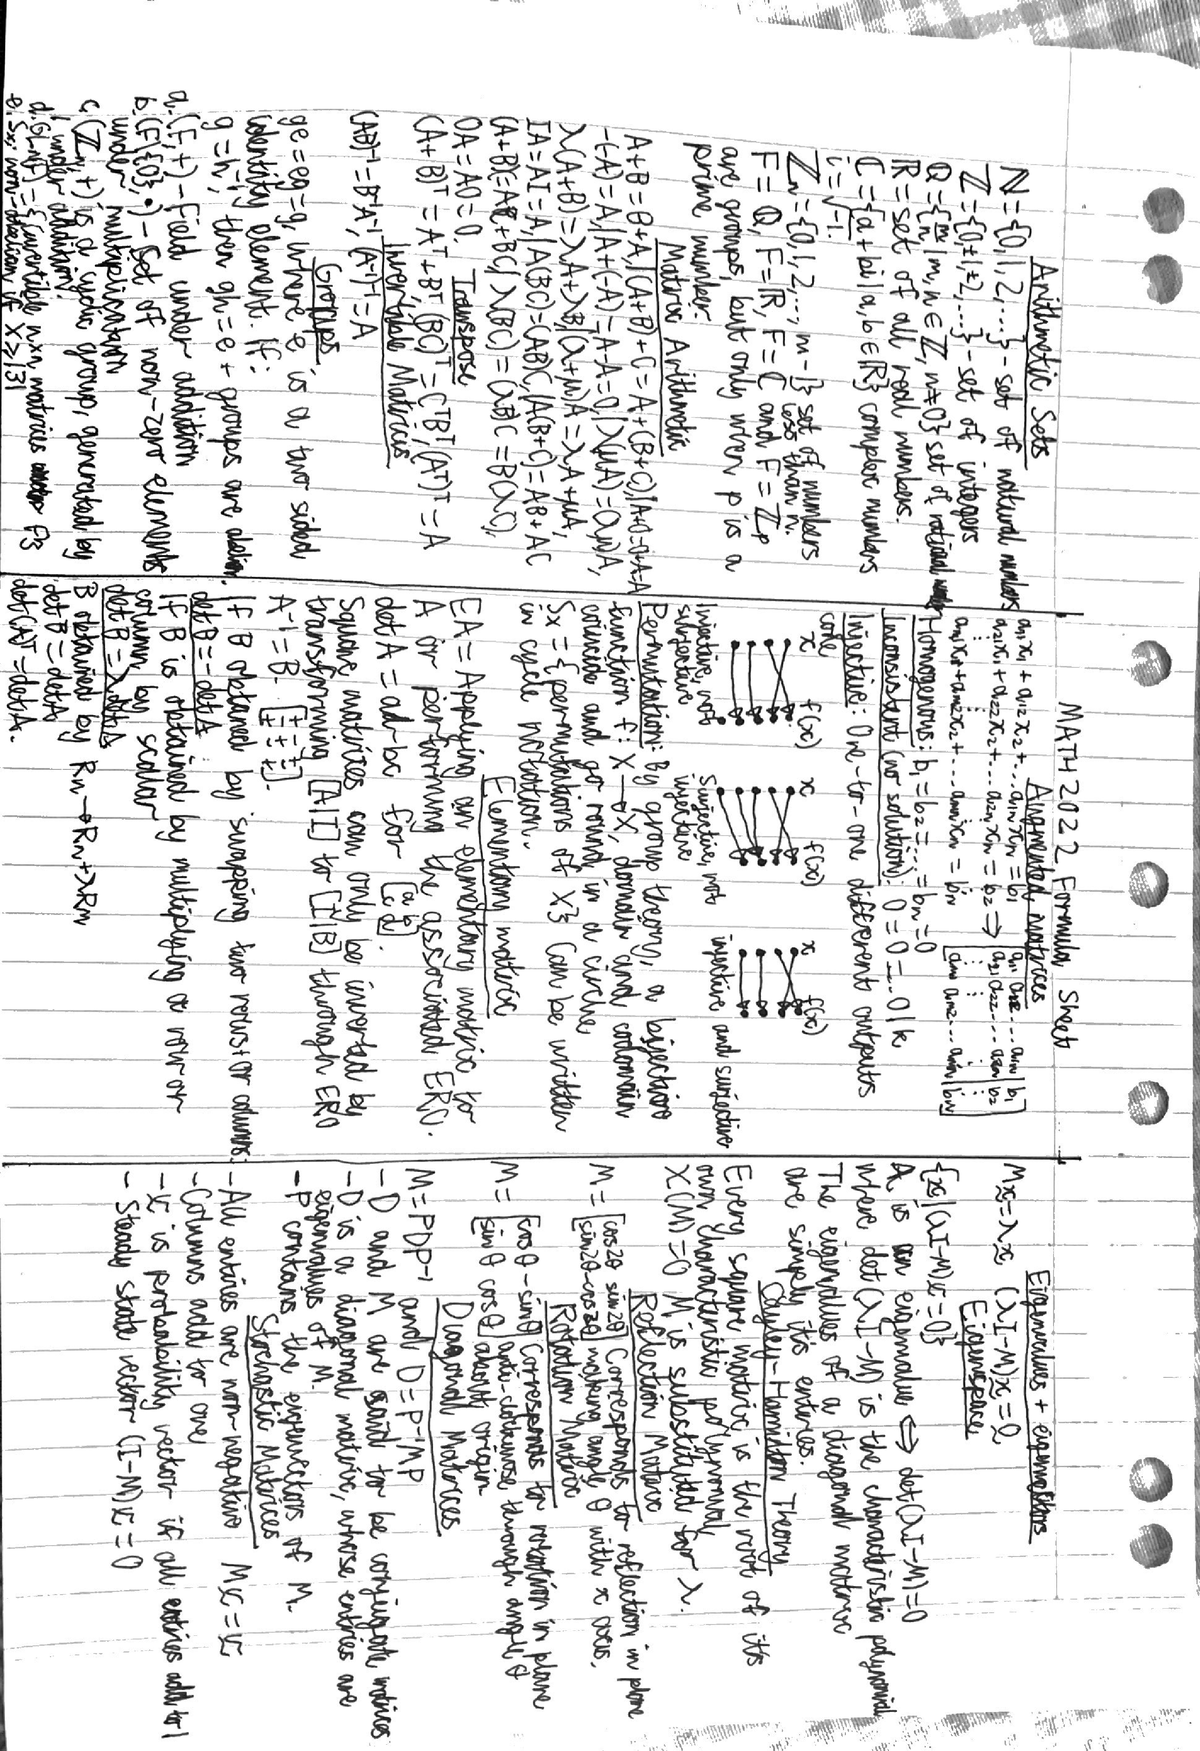 MATH2022 Formula Sheet
Arithmetic Sets
N={0,1,2,...} - set of natural numbers
Z={0,±1,±2,...} - set of integers
Q={m/n | m,n∈Z, n≠0} set of rational
R=set of all real numbers.
C={a+bi | a,b∈R} complex numbers
i=√-1.
Zn={0,1,2,..., n-1} set of numbers
less than n.
F=Q, F=R, F=C and F=Zp
are groups, but only when p is a
prime number.
Matrix Arithmetic
A+B=B+A, |(A+B)+C=A+(B+C), |A+0=0+A=A
-(-A)=A, |A+(-A)=-A+A=0, |λ(μA)=(λμ)A,
λ(A+B)=λA+λB, |(λ+μ)A=λA+μA,
IA=AI=A, |A(BC)=(AB)C, |A(B+C)=AB+AC
(A+B)C=AC+BC, |λ(BC)=(λB)C=B(λC),
0A=A0=0.
Transpose
(A+B)ᵀ=Aᵀ+Bᵀ, (BC)ᵀ=CᵀBᵀ, (Aᵀ)ᵀ=A
Invertible Matrices
(AB)⁻¹=B⁻¹A⁻¹, (A⁻¹)⁻¹=A
Groups
ge=eg=g, where e, is a two sided
identity element. If:
g=h⁻¹, then gh=e + groups are abelian.
a. (F,+) - Field under addition
b. (F\{0},•) - Set of non-zero elements
under multiplication
c. (Zn,+) is a cyclic group, generated by
1 under addition.
d. = {invertible nxn matrices
e. Sx: non-abelian, if X≥|3|
a₁₁x₁+a₁₂x₂+...a₁ₙxₙ=b₁
a₂₁x₁+a₂₂x₂+...a₂ₙxₙ=b₂ → [a₁₁ a₁₂ ... a₁ₙ | b₁
a₂₁ a₂₂ ... a₂ₙ | b₂
aₘ₁x₁+aₘ₂x₂+...aₘₙxₙ=bₙ aₘ₁ aₘ₂ ... aₘₙ | bₙ]
Augmented matrices
Homogenous: b₁=b₂=...=bₘ=0
Inconsistent (no solution): 0=0...0|k
Injective: One-to-one different outputs
x f(x) x f(x) x f(x)
injective, not surjective
Surjective, not injective
injective and surjective
Permutation: By group theory, a bijection
function f: X→X, domain and codomain
coincide and go round in a circle,
Sx={permutations of X} Can be written
in cycle notation.
Elementary matrix
EA=Applying an elementary matrix to
A or performing the associated ERO.
det A = ad-bc for [a b c d].
Square matrices can only be inverted by
transforming [A|I] to [I|B] through ERO
A⁻¹=B. [+ - + - + - + - +].
If B obtained by swapping two rows+or columns:
det B=-det A
If B is obtained by multiplying a row or
column by scalar
det B=λ det A
B obtained by Rn→Rn+λRm
det B=det A
det(A)ᵀ=det A.
Eigenvalues + eigenvectors
Mx=λx (λI-M)x=0
Eigenspace
{x|(λI-M)x=0}
λ, is an eigenvalue ⇔ det(λI-M)=0
where det(λI-M) is the characteristic polynomial
The eigenvalues of a diagonal matrix
are simply it's entries.
Cayley-Hamilton Theory
Every square matrix is the root of it's
own characteristic polynomial
X(M)=0 M is substituted for λ.
Reflection Matrix
M=[cos2θ sin2θ sin2θ -cos2θ] Corresponds to reflection in plane
making angle θ with x axis.
Rotation Matrix
M=[cosθ -sinθ sinθ cosθ] Corresponds to rotation in plane
anti-clockwise, through angle θ
about origin
Diagonal Matrices
M=PDP⁻¹ and D=P⁻¹MP
- D and M are said to be conjugate matrices
- D is a diagonal matrix, whose entries are
eigenvalues of M.
- P contains the eigenvectors of M.
Stochastic Matrices
- All entries are non-negative Mv=v
- Columns add to one
- v is probability vector if all entries add to 1
- Steady state vector (I-M)v=0